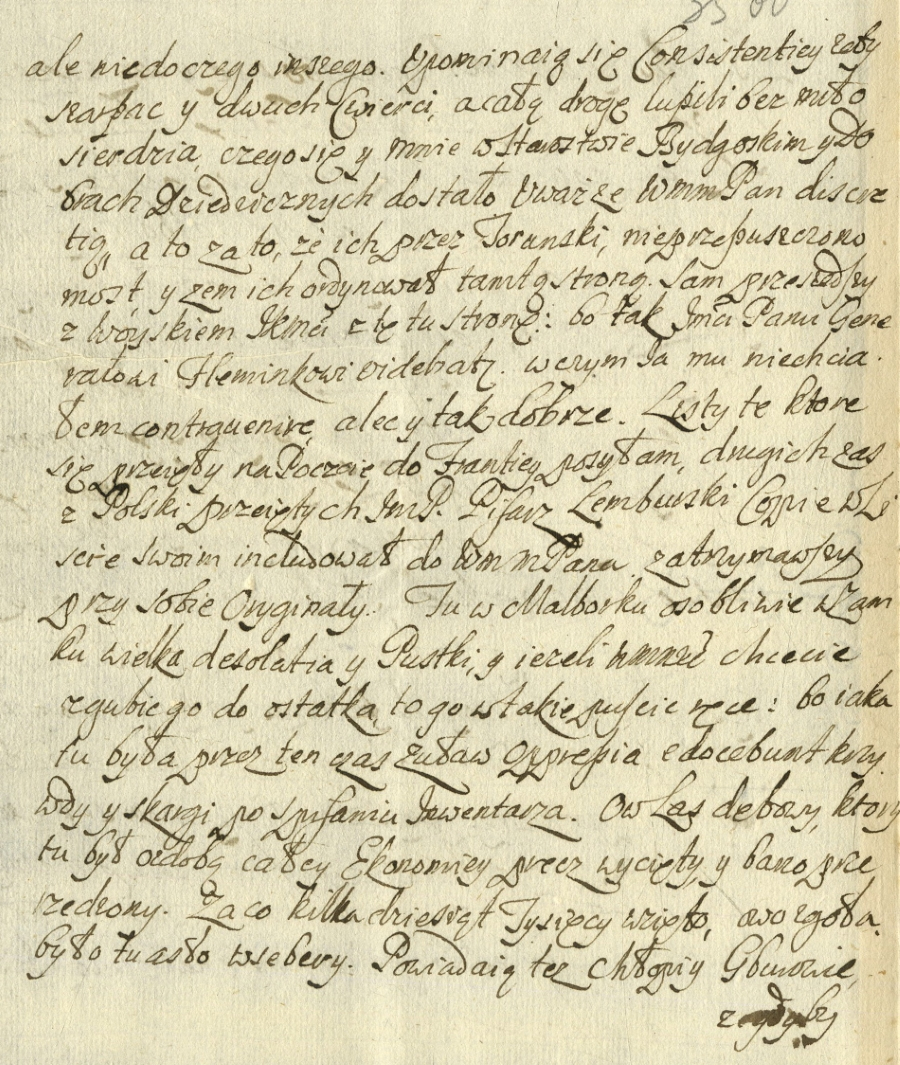 ale niedoczego inszego. Upominaią się Consistentiey zeby
szarpac y dwuch Cwierci, a całą drogę łupili bez miło
sierdzia, czego się y mnie w Starostwie Bydgoskim y Do
brach Dziedzicznych dostało Uważ ze WmmPan discre
tią, a to za to, że ich przez Torunski, nieprzepuszczono
most, y zem ich ordynował tamtą stroną. Sam przeszedszy
z Woyskiem IKmci z tę tu stronę: bo tak Jmci Panu Gene
rałowi Fleminkowi videbatz. w czym Ia mu niechcia
łem contravenire, alec y tak dobrze. Listy te ktore
się przeięły na Poczcie do Franciey posyłam, drugich zas
z Polski przeiętych JmP. Pisarz Lemburski Copie w Li
scie swoim includował do WmmPana zatrzymawszy
przy sobie Oryginały. Tu w Malborku osobliwie w Zam
ku wielka desolatia y Pustki, y iezeli chcecie
zgubic go do ostatka to go w takie puscie ręce: bo iaka
tu była przez ten czas Zuław oppressia edocebunt krzy
wdy y skargi po spisaniu Inwentarza. Ow Las dębowy, ktory
tu był ozdobą całey Ekonomiey precz wycięty, y barzo prze
rzedzony. Za co kilka dziesiąt Tysięcy wzięto, owo zgoła
było tu w sebery. Powiadaią tez Chłopi y Gburowie,
gdyby